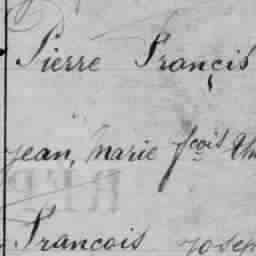 Pierre Françis
jean, marie fçois
Francois joseph